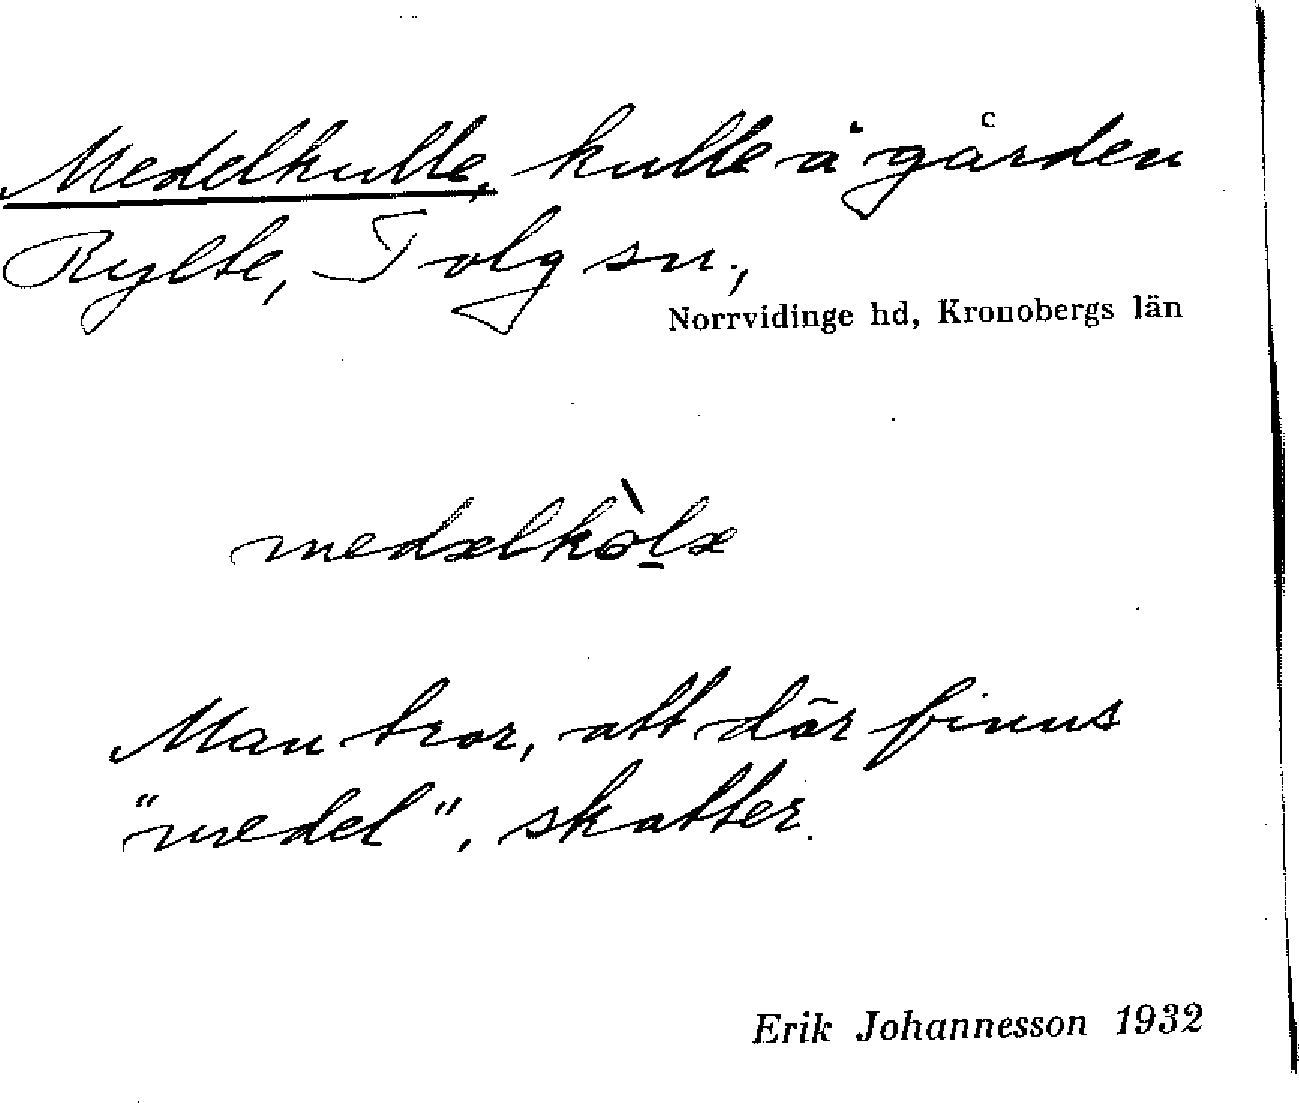 Medelkulle, kulle å gården
Rylte, Tolg sn.,
Norrvidinge hd, Kronobergs län
medælkòlæ
Man tror, att där finns
"medel", skatter.
Erik Johannesson 1932